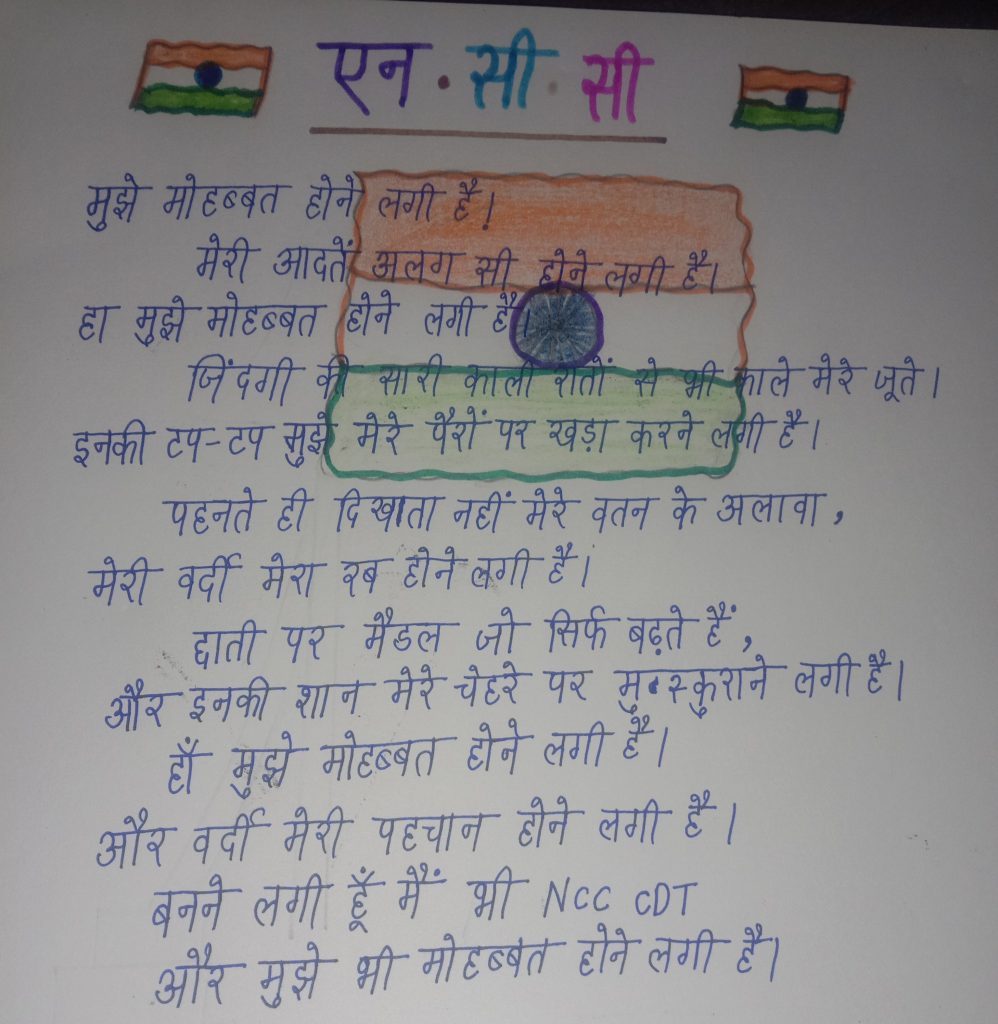 एन . सी . सी
मुझे मोहब्बत होने लगी है।
मेरी आदतें अलग सी होने लगी है।
हा मुझे मोहब्बत होने लगी है।
जिंदगी की सारी काली रातों से भी काले मेरे जूते।
इनकी टप-टप मुझे मेरे पैरों पर खड़ा करने लगी है।
पहनते ही दिखाता नहीं मेरे वतन के अलावा,
मेरी वर्दी मेरा रब होने लगी है।
छाती पर मैडल जो सिर्फ बढ़ते हैं,
और इनकी शान मेरे चेहरे पर मुस्कुराने लगी है।
हाँ मुझे मोहब्बत होने लगी है।
और वर्दी मेरी पहचान होने लगी है।
बनने लगी हूँ मैं भी NCC CDT
और मुझे भी मोहब्बत होने लगी है।